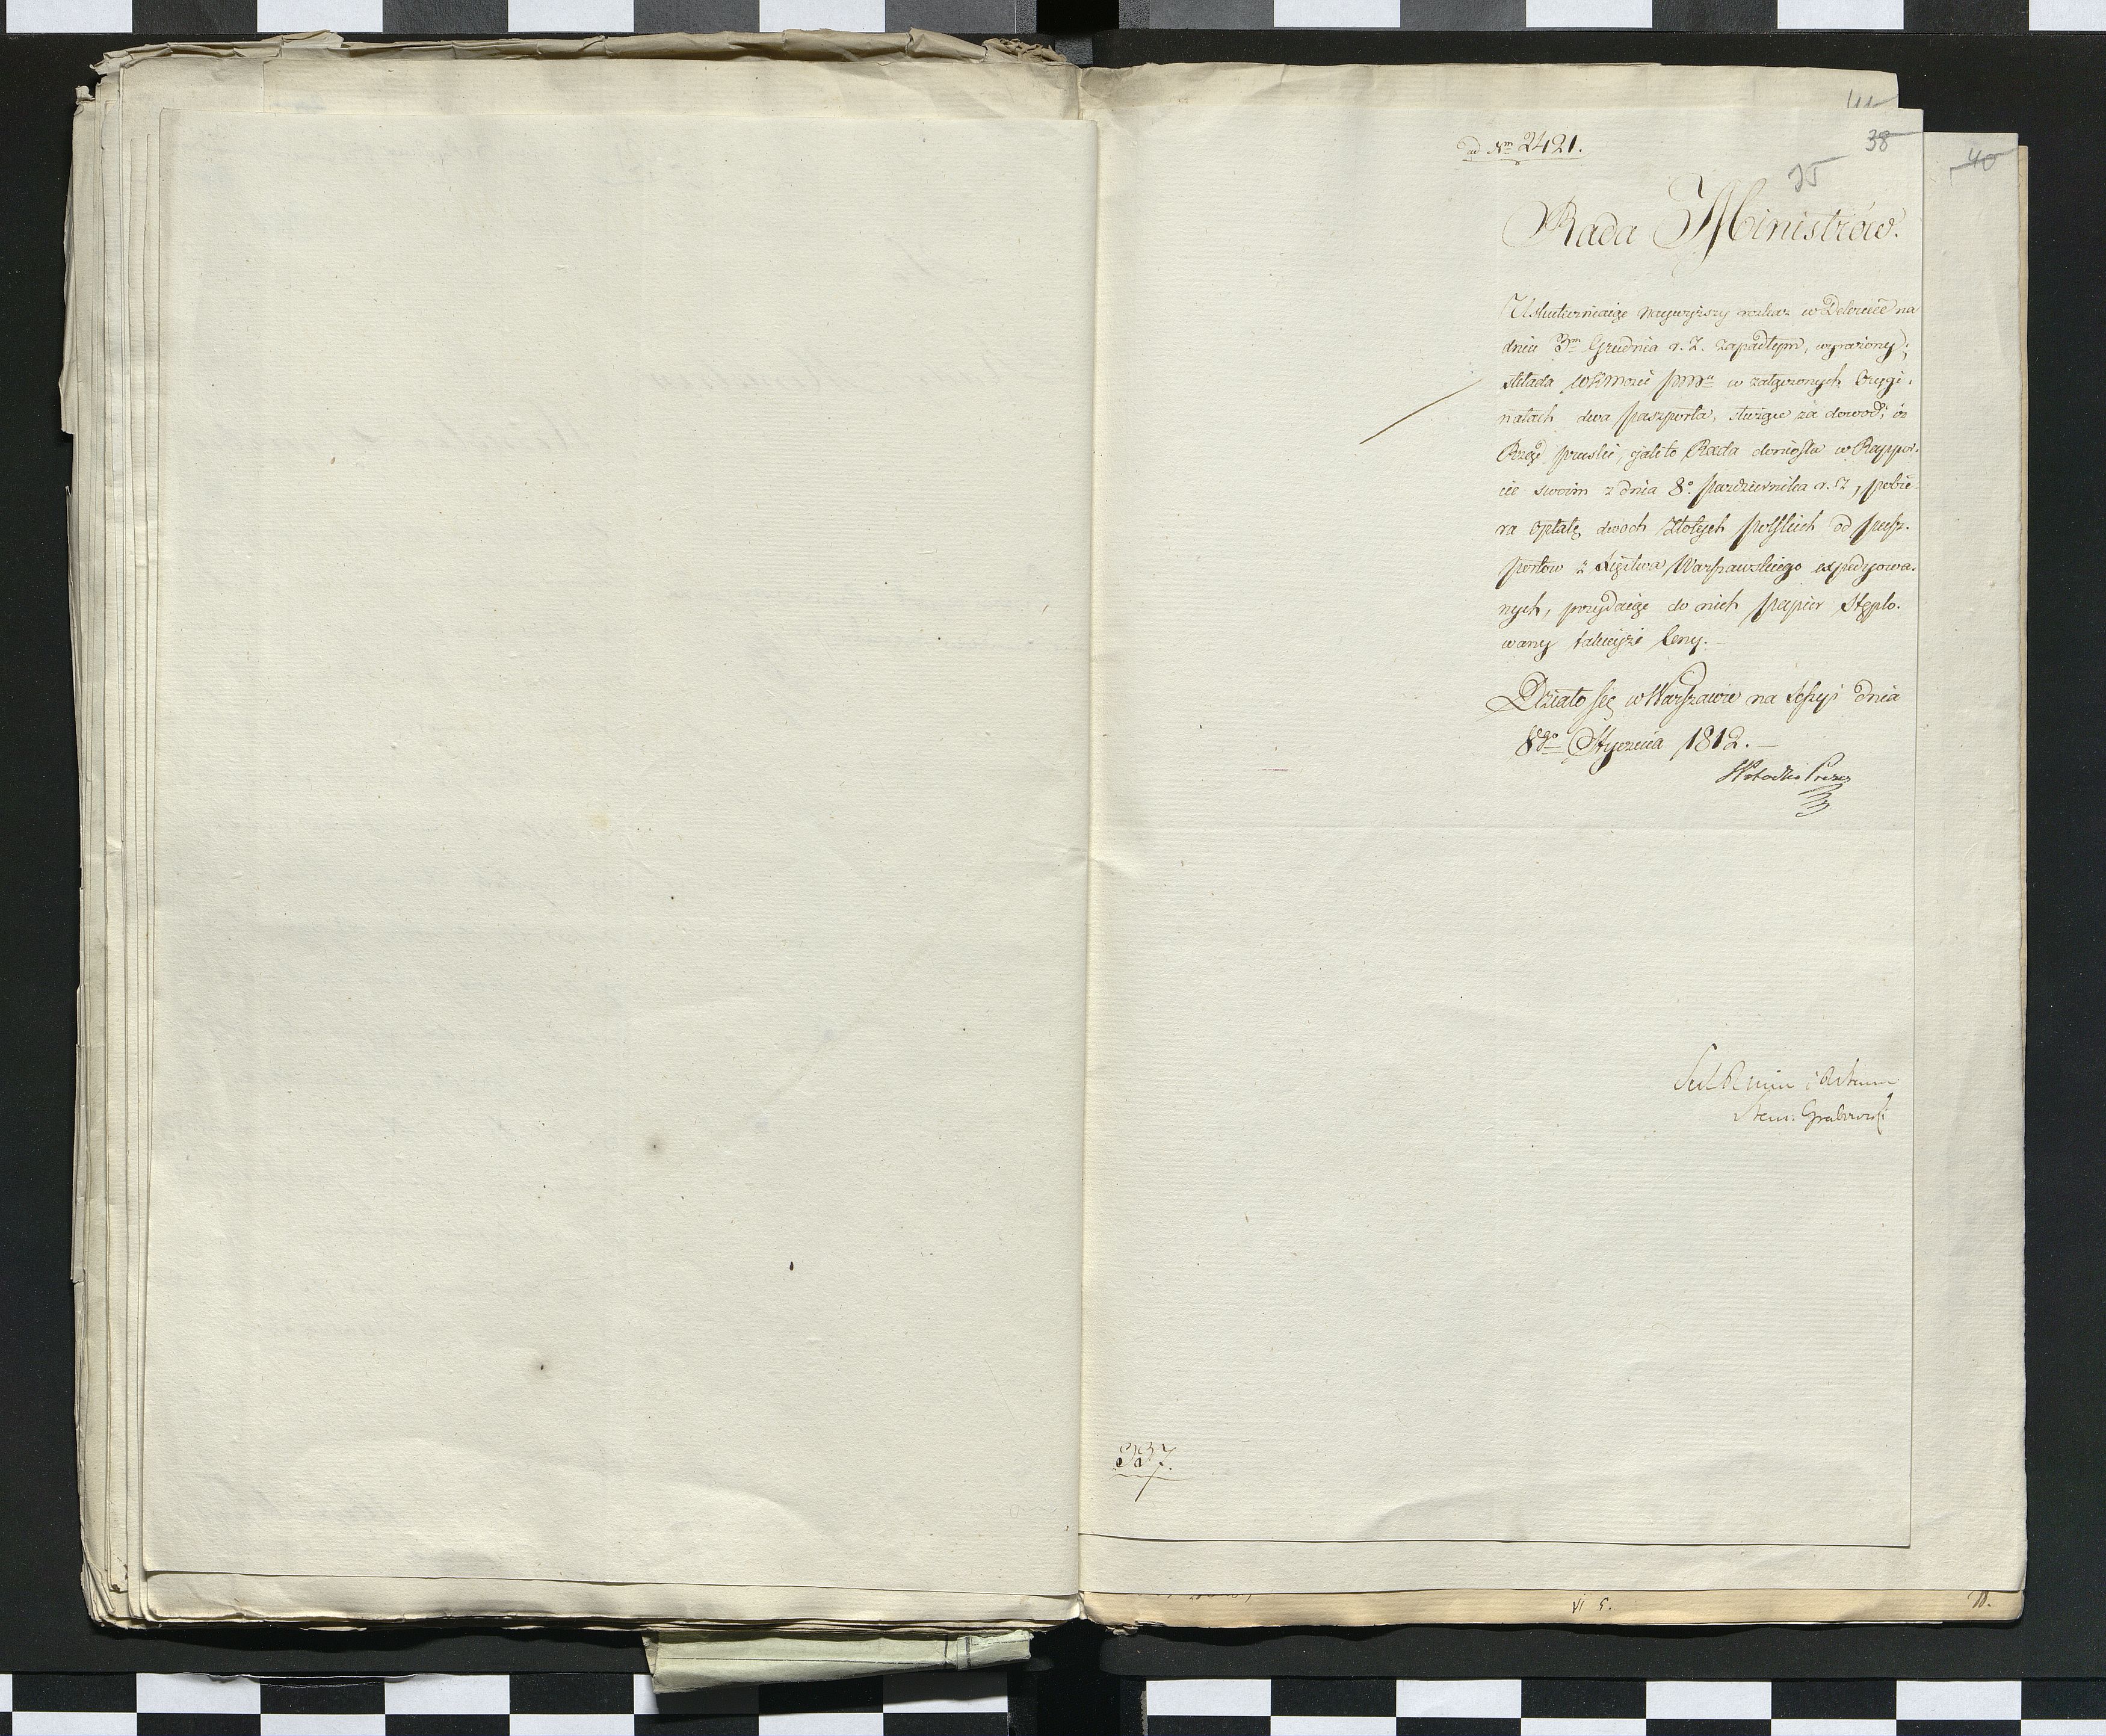 ad Nrm 2421.
38
40
35
Rada Ministrów.
Uskuteczniaiąc naywyższy rozkaz w Dekrecie na
dniu 3m Grudnia r. z. zapadłym, wyrażony;
składa w załączonych Orygi-
nałach dwa paszporta, służące za dowód; iż
Rząd pruski, jak to Rada doniosła w Rappor-
cie swoim z dnia 8o Pazdziernika r. z, pobie-
ra opłatę dwoch złotych polskich od pasz-
portow z Xięstwa Warszawskiego expedyowa-
nych, przydaiąc do nich papier stęplo-
wany takieyże Ceny.
Działo się w Warszawie na Sessyi dnia
8go Stycznia 1812.
Prezes
Stan: Grabowski
337.